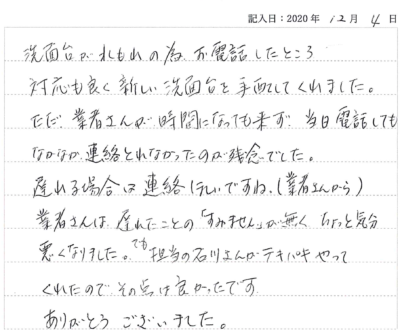 記入日：2020年 12月 4日
洗面台が水もれの為、お電話したところ
対応も良く新しい洗面台を手配してくれました。
ただ、業者さんが時間になっても来ず、当日電話しても
なかなか連絡とれなかったのが残念でした。
遅れる場合は連絡ほしいですね、(業者さんから)
業者さんは、遅れたことの「すみません」が無く ちょっと気分
悪くなりました。でも担当の石川さんがテキパキやって
くれたので その点は良かったです
ありがとう ございました。